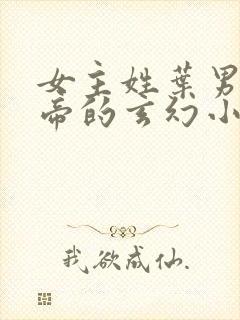 女主姓葉男
帝的玄幻小
我欲成仙.